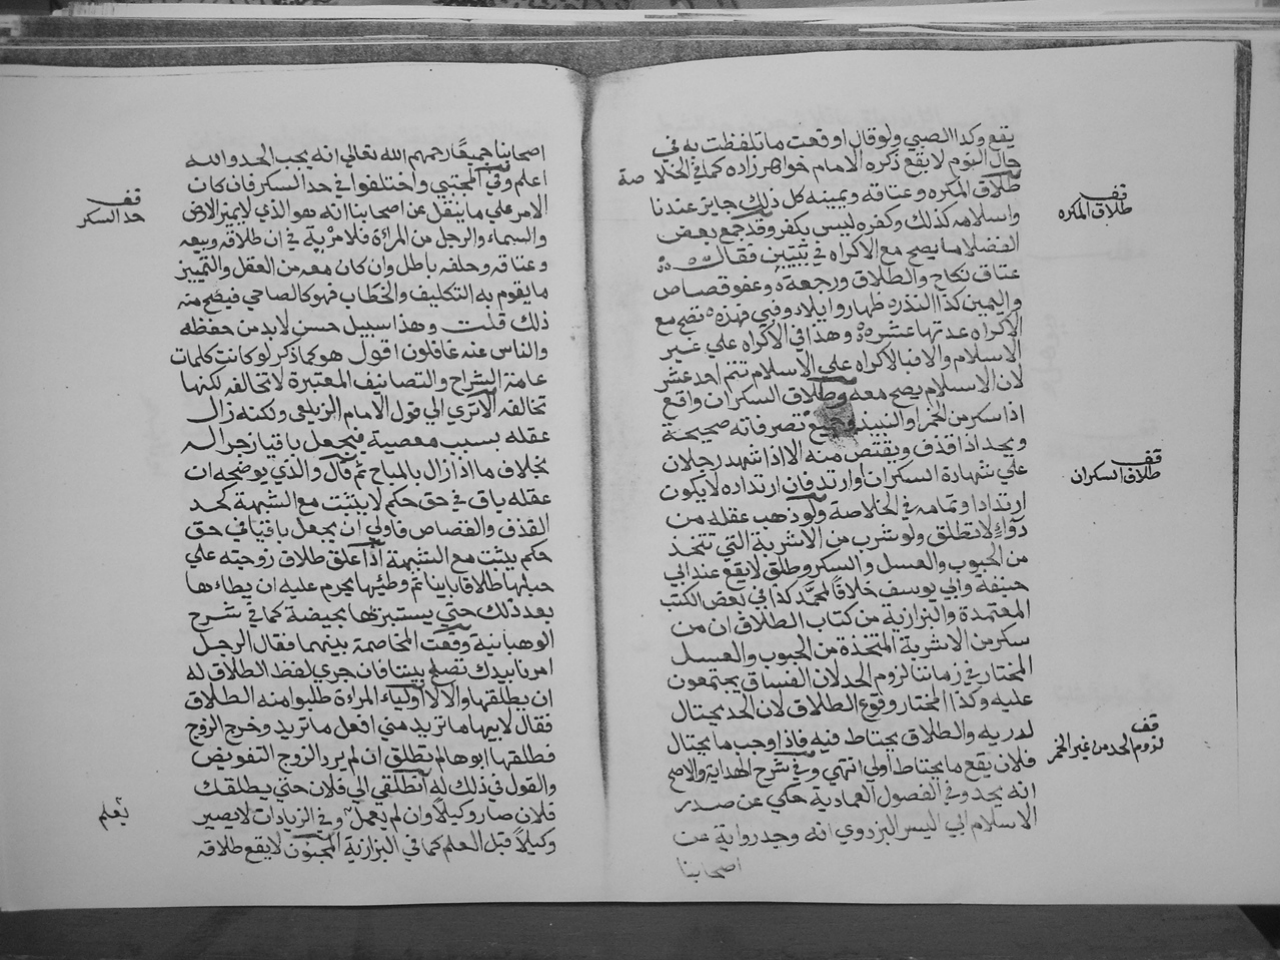 يقع وكذا الصبي ولو قال اوقعت ما تلفظت به في
حال النوم لا يقع ذكره الامام خواهر زاده كما في الخلاصة
طلاق المكره وعتاقه ويمينه كل ذلك جايز عندنا
واسلامه كذلك وكفره ليس بكفر وقد جمع بعض
الفضلا ما يصح مع الاكراه في بيتين فقال
عتاق نكاح والطلاق ورجعة وعفو قصاص
واليمين كذا النذر ظهار وايلاد وفيي فهذه تصح مع
الاكراه عدتها عشرة وهذا في الاكراه علي غير
الاسلام والا فبالاكراه علي الاسلام تتم احد عشر
لان الاسلام يصح معه وطلاق السكران واقع
اذا سكر من الخمر او النبيذ وجميع تصرفاته صحيحة
ويحد اذا قذف ويقتص منه الا اذا شهد رجلان
علي شهادة السكران وارتد فان ارتداده لا يكون
ارتدادا وتمامه في الخلاصة ولو ذهب عقله من
دواء لا تطلق ولو شرب من الاشربة التي تتخذ
من الحبوب والعسل والسكر وطلق لا يقع عند ابي
حنيفة وابي يوسف خلافا لمحمد كذا في بعض الكتب
المعتمدة والبزازية من كتاب الطلاق ان من
سكر من الاشربة المتخذة من الحبوب والعسل
المختار في زماننا لزوم الحد لان الفساق يجتمعون
عليه وكذا المختار وقوع الطلاق لان الحد يحتال
لدريه والطلاق يحتاط فيه فاذا وجب ما يحتال
فلان يقع ما يحتاط اولي انتهي وفي شرح الهداية والاصح
انه يحد وفي الفصول العمادية حكي عن صدر
الاسلام ابي اليسر البزدوي انه وجد رواية عن
اصحابنا
قف
طلاق المكره
قف
طلاق السكران
قف
لزوم الحد من غير الخمر
اصحابنا جميعا رحمهم الله تعالي انه يجب الحد والله
اعلم وفي المجتبي واختلفوا في حد السكر فان كان
الامر علي ما ينقل عن اصحابنا انه هو الذي لا يميز الارض
والسماء والرجل من المراة فلا مرية في ان طلاقه وبيعه
وعتاقه وحلفه باطل وان كان معه من العقل والتمييز
ما يقوم به التكليف والخطاب فهو كالصاحي فيصح منه
ذلك قلت وهذا سبيل حسن لا بد من حفظه
والناس عنه غافلون اقول هو كما ذكر لو كانت كلمات
عامة الشراح والتصانيف المعتبرة لا تخالفه لكنها
تخالفه الا تري الي قول الامام الزيلعي ولكنه زال
عقله بسبب معصية فيجعل باقيا زجرا له
بخلاف ما اذا زال بالمباح ثم قال والذي يوضحه ان
عقله باق في حق حكم لا يثبت مع الشبهة كحد
القذف والقصاص فاولي ان يجعل باقيا في حق
حكم يثبت مع الشبهة اذا علق طلاق زوجته علي
حبلها طلاقا باينا ثم وطئها يحرم عليه ان يطاءها
بعد ذلك حتي يستبرئها بحيضة كما في شرح
الوهبانية وقعت المخاصمة بينهما فقال الرجل
امرنا بيدك تصلح بيننا فان جري لفظ الطلاق له
ان يطلقها والا لا اولياء المراة طلبوا منه الطلاق
فقال لابيها ما تريد مني افعل ما تريد وخرج الزوج
فطلقها ابوها لم تطلق ان لم يرد الزوج التفويض
والقول في ذلك له انطلقي الي فلان حتي يطلقك
فلان صار وكيلا وان لم يعمل وفي الزيادات لا يصير
وكيلا قبل العلم كما في البزازية المجنون لا يقع طلاقه
قف
حد السكر
يعلم